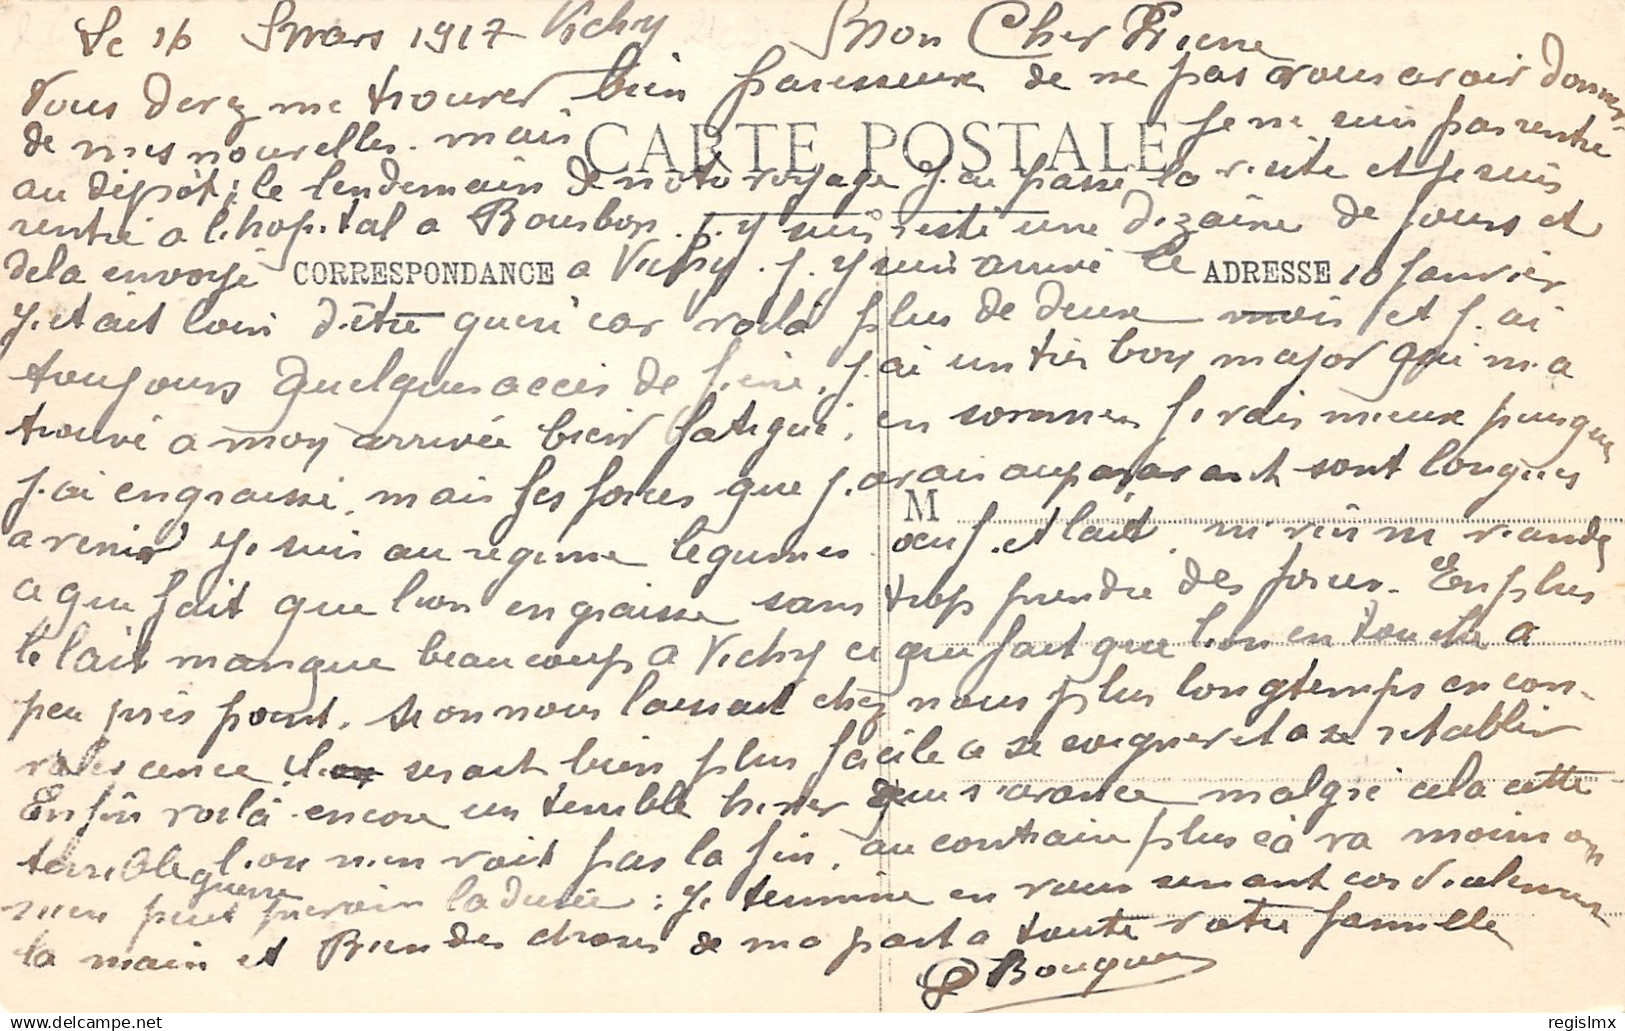 Le 16 Mars 1917 Vichy Mon Cher Pierre
Vous devez me trouver bien paresseux de ne pas vous avoir donner
de mes nouvelles. mais je ne suis pas rentré
CARTE POSTALE
au dépôt; le lendemain de noto voyage j'ai passé la visite et je suis
rentré a l'hopital a Bourbon. j.y suis resté une dizaine de jours et
dela envoyé a Vichy. j.y suis arrivé le 10 janvier
CORRESPONDANCE ADRESSE
j'etait loin d'être gueri car voilà plus de deux mois et j.ai
toujours quelques acces de fievre, j'ai un tres bon major qui m.a
trouvé a mon arrivée bien fatigué, en somme je vais mieux puisque
j.ai engraissé, mais les forces que j.avais auparavant sont longues
M
a venir je suis au regime légumes oeuf. et lait, ni vin ni viande
ce que fait que l'on engraisse sans trop prendre des forces. En plus
le lait manque beaucoup a Vichy ce que fait que l.on en touche a
peu près point. si on nous laissait chez nous plus longtemps en con-
valescence il serait bien plus facile a se soigner et a se retablir
Enfin voilà encore un terrible hiver que s'avance malgré cela cette
terrible guerre l.on n'en voit pas la fin, au contraire plus ça va moins on
n'en peut prevoir la durée: je termine en vous serrant cordialement
la main et Bien des choses de ma part a toute votre famille
Bouquen
regislmx